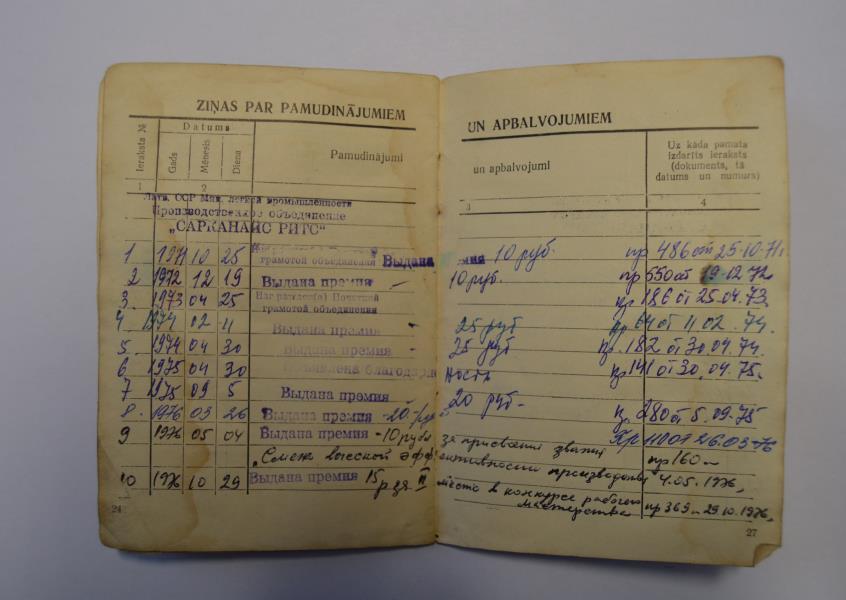 ZIŅAS PAR PAMUDINĀJUMIEM
UN APBALVOJUMIEM
Ieraksta №
Datums
Gads
Mēnesis
Diena
Pamudinājumi
un apbalvojumi
Uz kāda pamata
izdarīts ieraksts
(dokuments, tā
datums un numurs)
1 2 3 4
Латв. ССР Мин. легкой промышленности
Производственное объединение
„САРКАНАЙС РИТС"
1 1971 10 25 грамотой объединения Выдана премия 10 руб. пр 486 от 25.10.71г
2 1972 12 19 Выдана премия – 10 руб. пр 550 от 19.12.72
3 1973 04 25 Награжден(а) Почетной
грамотой объединения пр 186 от 25.04.73.
4 1974 02 11 Выдана премия - 25 руб пр 64 от 11.02.74.
5 1974 04 30 Выдана премия - 25 руб пр. 182 от 30.04.74.
6 1975 04 30 Объявлена благодарность пр 141 от 30.04.75.
7 1975 09 5 Выдана премия 20 руб- 280 от 5.09.75
8 1976 03 26 Выдана премия -20- Пр 26.03.76
9 1976 05 04 Выдана премия -10 рубл за присвоение звания пр 160-
высокой эффективности производства 4.05.1976,
10 1976 10 29 Выдана премия 15 р за II место в конкурсе рабочего
мастерства пр 369 - 29.10.1976,
24
27